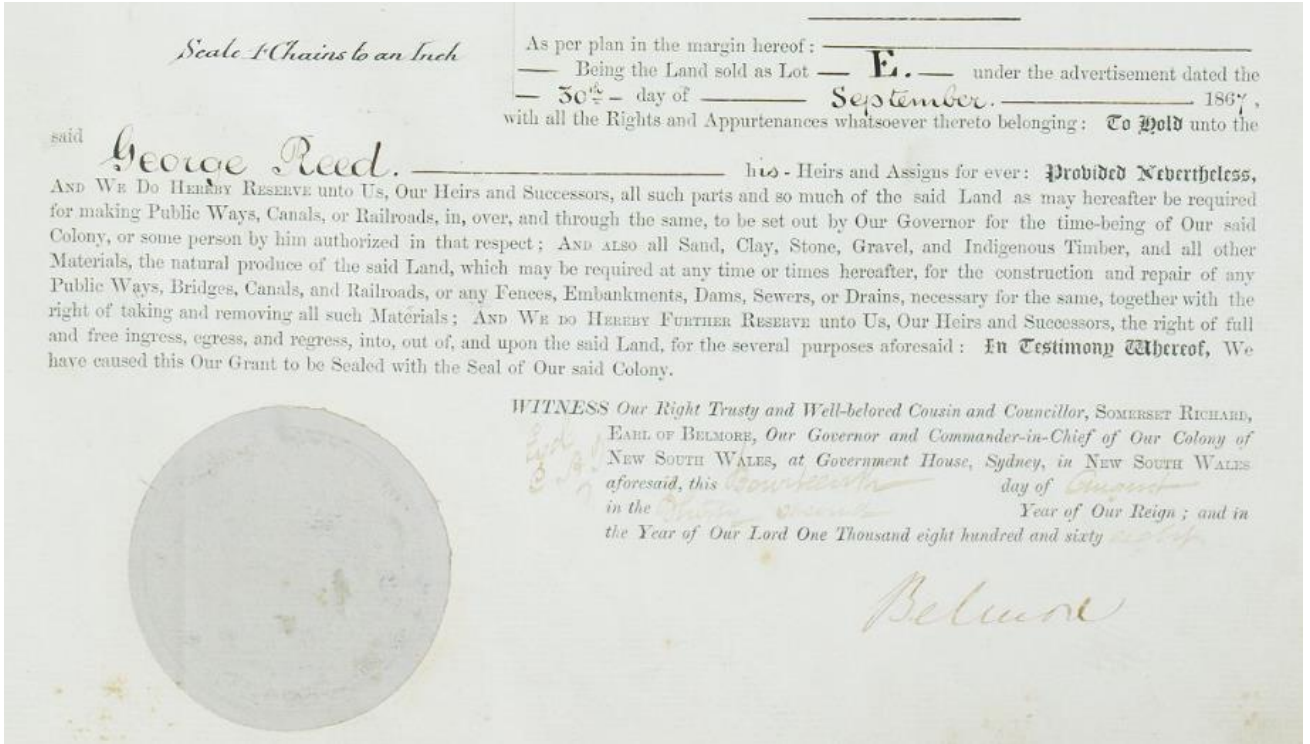 Scale 4 Chains to an Inch
As per plan in the margin hereof :
Being the Land sold as Lot E. under the advertisement dated the
30th day of September. 1867,
with all the Rights and Appurtenances whatsoever thereto belonging : To Hold unto the
said
George Reed. his - Heirs and Assigns for ever : Provided Nevertheless,
AND WE DO HEREBY RESERVE unto Us, Our Heirs and Successors, all such parts and so much of the said Land as may hereafter be required
for making Public Ways, Canals, or Railroads, in, over, and through the same, to be set out by Our Governor for the time-being of Our said
Colony, or some person by him authorized in that respect ; AND ALSO all Sand, Clay, Stone, Gravel, and Indigenous Timber, and all other
Materials, the natural produce of the said Land, which may be required at any time or times hereafter, for the construction and repair of any
Public Ways, Bridges, Canals, and Railroads, or any Fences, Embankments, Dams, Sewers, or Drains, necessary for the same, together with the
right of taking and removing all such Materials ; AND WE DO HEREBY FURTHER RESERVE unto Us, Our Heirs and Successors, the right of full
and free ingress, egress, and regress, into, out of, and upon the said Land, for the several purposes aforesaid : In Testimony Whereof, We
have caused this Our Grant to be Sealed with the Seal of Our said Colony.
WITNESS Our Right Trusty and Well-beloved Cousin and Councillor, SOMERSET RICHARD,
EARL OF BELMORE, Our Governor and Commander-in-Chief of Our Colony of
NEW SOUTH WALES, at Government House, Sydney, in NEW SOUTH WALES
aforesaid, this Fourteenth day of August
in the Thirty second Year of Our Reign ; and in
the Year of Our Lord One Thousand eight hundred and sixty eight
Belmore